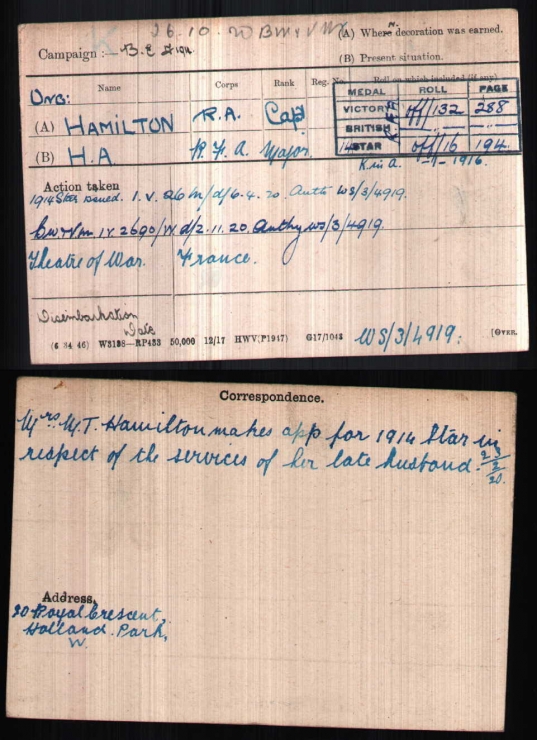 26.10.20 BM & V M
Campaign :— B.E 1914.
(A) Where decoration was earned.
(B) Present situation.
Name Corps Rank Reg. No. Roll on which included (if any)
MEDAL ROLL PAGE
DNB:
(A) HAMILTON R.A. Capt VICTORY off/132 288
BRITISH
(B) H.A. R.F.A. Major. 14 STAR off/16 194.
K in A. 1916.
Action taken
1914 Star issued. I.V. 26 M/d/6.4.20. Auth WS/3/4919.
BW & Vm. I.V. 2690/W d/2.11.20. Authy WS/3/4919.
Theatre of War. France.
Disembarkation
Date
(6 34 46) W3198—RP433 50,000 12/17 HWV(P1947) G17/1043 WS/3/4919. [OVER.
Correspondence.
Mrs M.T. Hamilton makes app for 1914 Star in
respect of the services of her late husband. 23/2/20.
Address,
20 Royal Crescent,
Holland Park,
W.